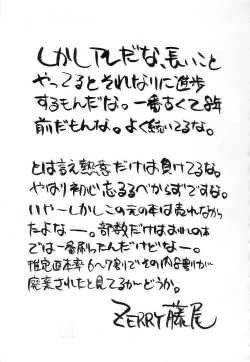 しかしアレだな、長いこと
やってるとそれなりに進歩
するもんだな。一番古くて8年
前だもんな。よく続いてるな。
とは言え熱意だけは負けてるな。
やはり初心忘るるべからずですな。
いやーしかしこの元の本は売れなかっ
たよなー。部数だけは
では一番刷ったんだけどなー。
推定返本率6〜7割でその内8割が
廃棄されたと見てるがーどうか。
ZERRY藤尾